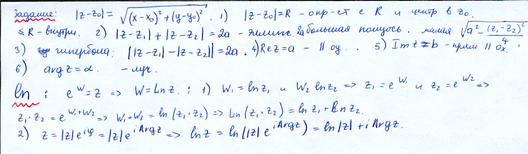 Задание: |z-z₀| = √((x-x₀)²+(y-y₀)²). 1) |z-z₀|=R - окр-ст с R и центр в z₀.
≤ R - внутри. 2) |z-z₁| + |z-z₂| = 2a - эллипс 2a большая полуось, малая √(a² - |z₁-z₂|²/4)
3) гипербола: ||z-z₁|-|z-z₂|| = 2a. 4) Re z = a - || oy. 5) Im z = b - прям || ox.
6) arg z = α. - луч.
ln : e^w = z => w = ln z. : 1) w₁ = ln z₁ и w₂ = ln z₂ => z₁ = e^w₁ и z₂ = e^w₂ =>
z₁·z₂ = e^(w₁+w₂) => w₁+w₂ = ln(z₁·z₂) => ln(z₁·z₂) = ln z₁ + ln z₂.
2) z = |z|e^(iφ) = |z|e^(i Arg z) => ln z = ln(|z| e^(i Arg z)) = ln|z| + i Arg z.